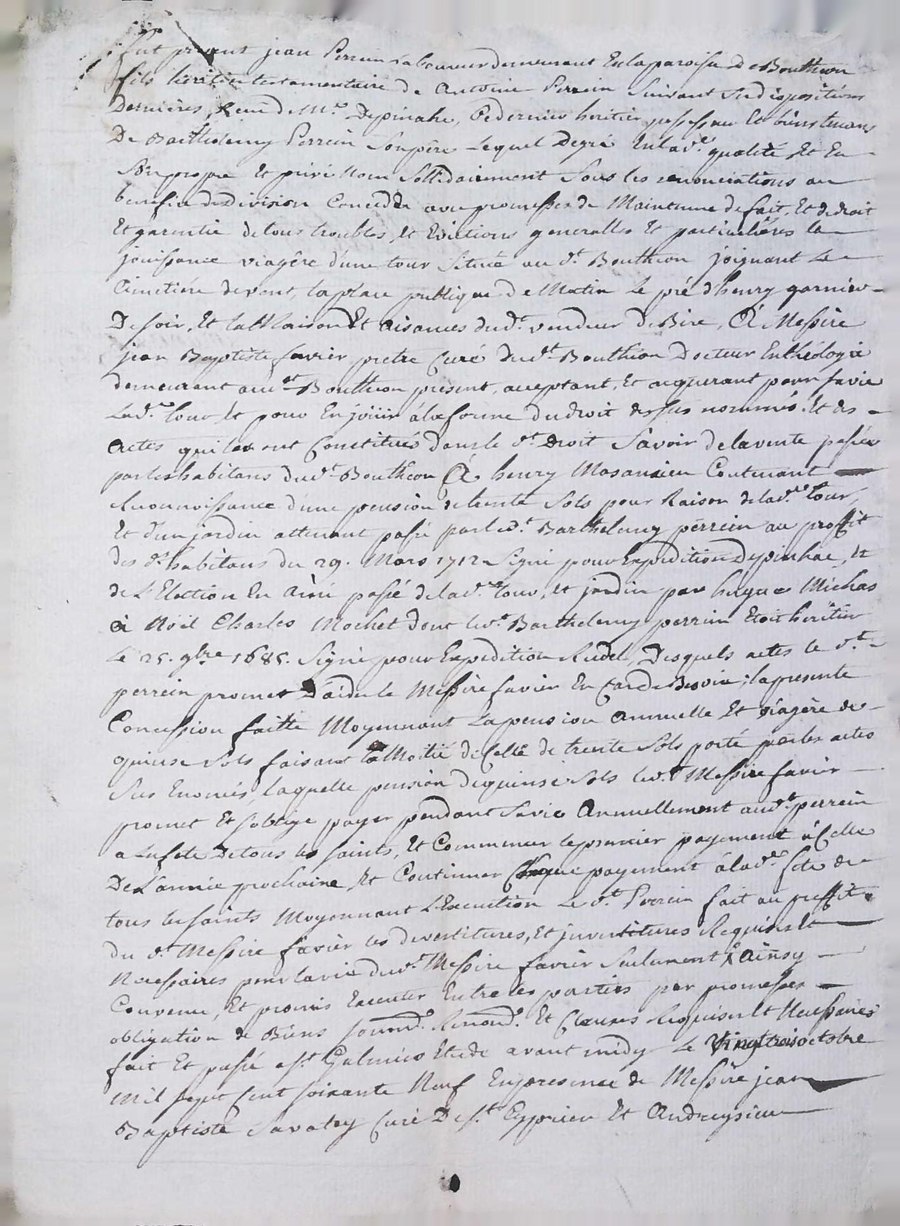 fut present jean Perrein Laboureur demeurant En la paroisse De Bouthion
fils heritier testamentaire de Antoine Perrein suivant ses dispositions
Dernieres, Receu de Mr. Depinahc, Ce dernier heritier possesseur Et bienstenans
De Barthelemy Perrein Son pere Lequel Degré En lad.e qualité Et En
Son propre Et privé Nom Sollidairement Sous les renonciations au
benefice de division Concede avec promesses de Maintenue de fait, Et de droit
Et garentie de tous troubles, Et Evictions generalles Et particulières la
jouissance viagère d'une tour Située au d.t Bouthion joignant Le
Cimetiere de vent, la place publique de Matin Le pré d'henry garnier
De soir, Et la Maison Et aisances dud.t vendeur de Bize, A Messire
jean Baptiste favier pretre Curé dud.t Bouthion Docteur En théologie
demeurant aud.t Bouthion present, acceptant, Et acquerant pour sa vie
Lad.e tour, Et pour En jouir à la forme du droit des sus nommés, Et des
actes qui les ont Constitués dans le d.t Droit Savoir de la vente passée
par les habitans dud.t Bouthion A henry Contenant
Reconnoissance d'une pension de trente Sols pour Raison de lad.e tour,
Et d'un jardin attenant passé par led.t Barthelemy perrein au proffit
des d.s habitans du 29. Mars 1712 Signé pour Expedition Depinhac, Et
de L'Election En Amy passé de lad.e tour, Et jardin par hugues Michas
à Noël Charles Mochet dont led.t Barthelemy perrein Etoit heritier
Le 25. 9bre 1685. Signé pour Expedition Desquels actes le d.t
perrein promet D'aider le Messire favier En Cas de Besoin; la presente
Concession faitte Moyennant La pension annuelle Et viagère de
quinze Sols faisant la Moitié de Celle de trente Sols porté par les actes
Sus Enoncés, laquelle pension de quinze Sols led.t Messire favier
promet Et s'oblige payer pendant Sa vie Annuellement aud.t perrein
a La fete De tous les Saints, Et Commencer le premier payement à Celle
De L'année prochaine, Et Continuer Chaque payement à lad.e fete de
tous les Saints Moyennant L'Execution Le d.t Perrein fait au proffit
du d.t Messire favier les devestitures, Et investitures Requises Et
Necessaires pour la vie dud.t Messire favier Seulement, Ainsy
Convenu, Et promis Executer Entre les parties par promesses
obligation de Biens Soumd. Renond. Et Clauses Requises Et Necessaires
fait Et passé a St. Galmier Etude avant midy Le Vingt trois octobre
Mil Sept Cent Soixante Neuf En presence de Messire jean
Baptiste Savatey Curé De St. Cyprien Et Andreysieu